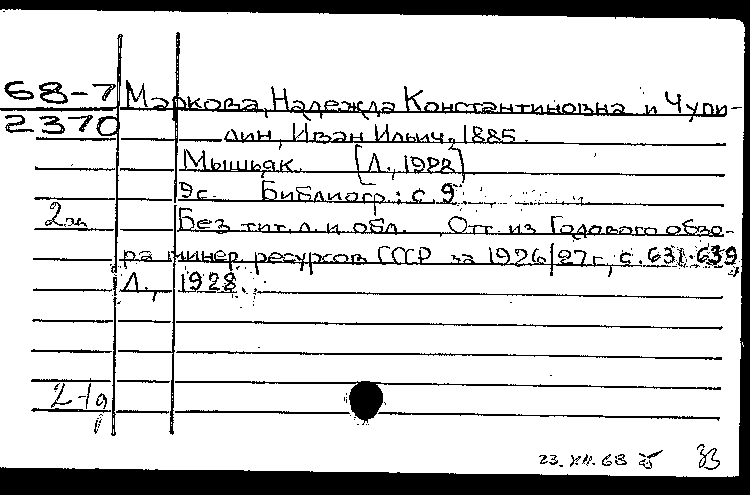 68-7
2370
Маркова, Надежда Константиновна и Чупи-
лин, Иван Ильич, 1885.
Мышьяк. [Л., 1928]
9с. Библиогр.: с. 9
2эк
Без тит. л. и обл. Отт. из Годового обзо-
ра минер. ресурсов СССР за 1926/27г., с. 631-639,
Л., 1928.
2-1д
23.VII.68